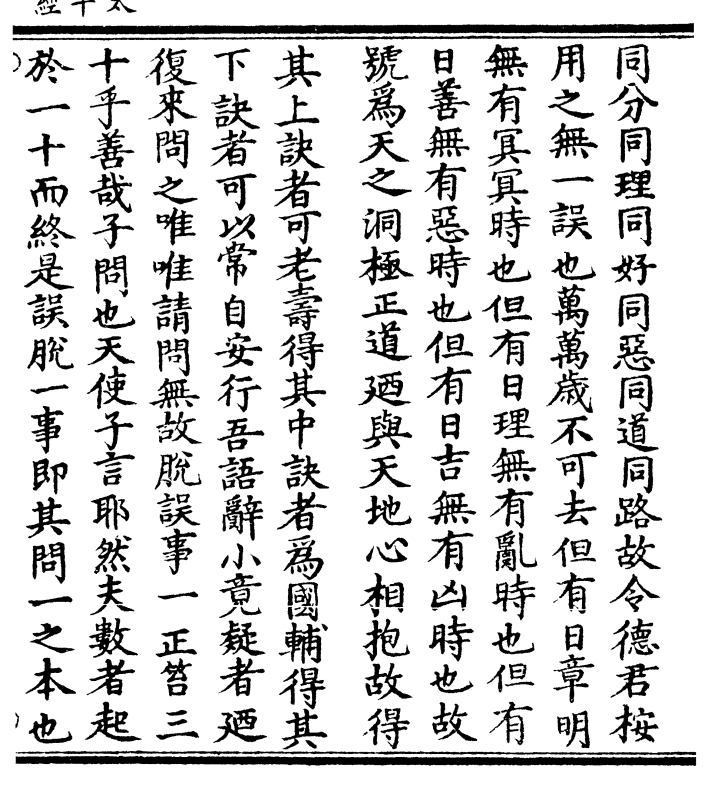 太平經
同分同理同好同惡同道同路故令德君桉
用之無一誤也萬萬歲不可去但有日章明
無有冥冥時也但有日理無有亂時也但有
日善無有惡時也但有日吉無有凶時也故
號爲天之洞極正道廼與天地心相抱故得
其上訣者可老壽得其中訣者爲國輔得其
下訣者可以常自安行吾語辭小竟疑者廼
復來問之唯唯請問無故脫誤事一正笞三
十乎善哉子問也天使子言耶然夫數者起
於一十而終是誤脫一事即其問一之本也